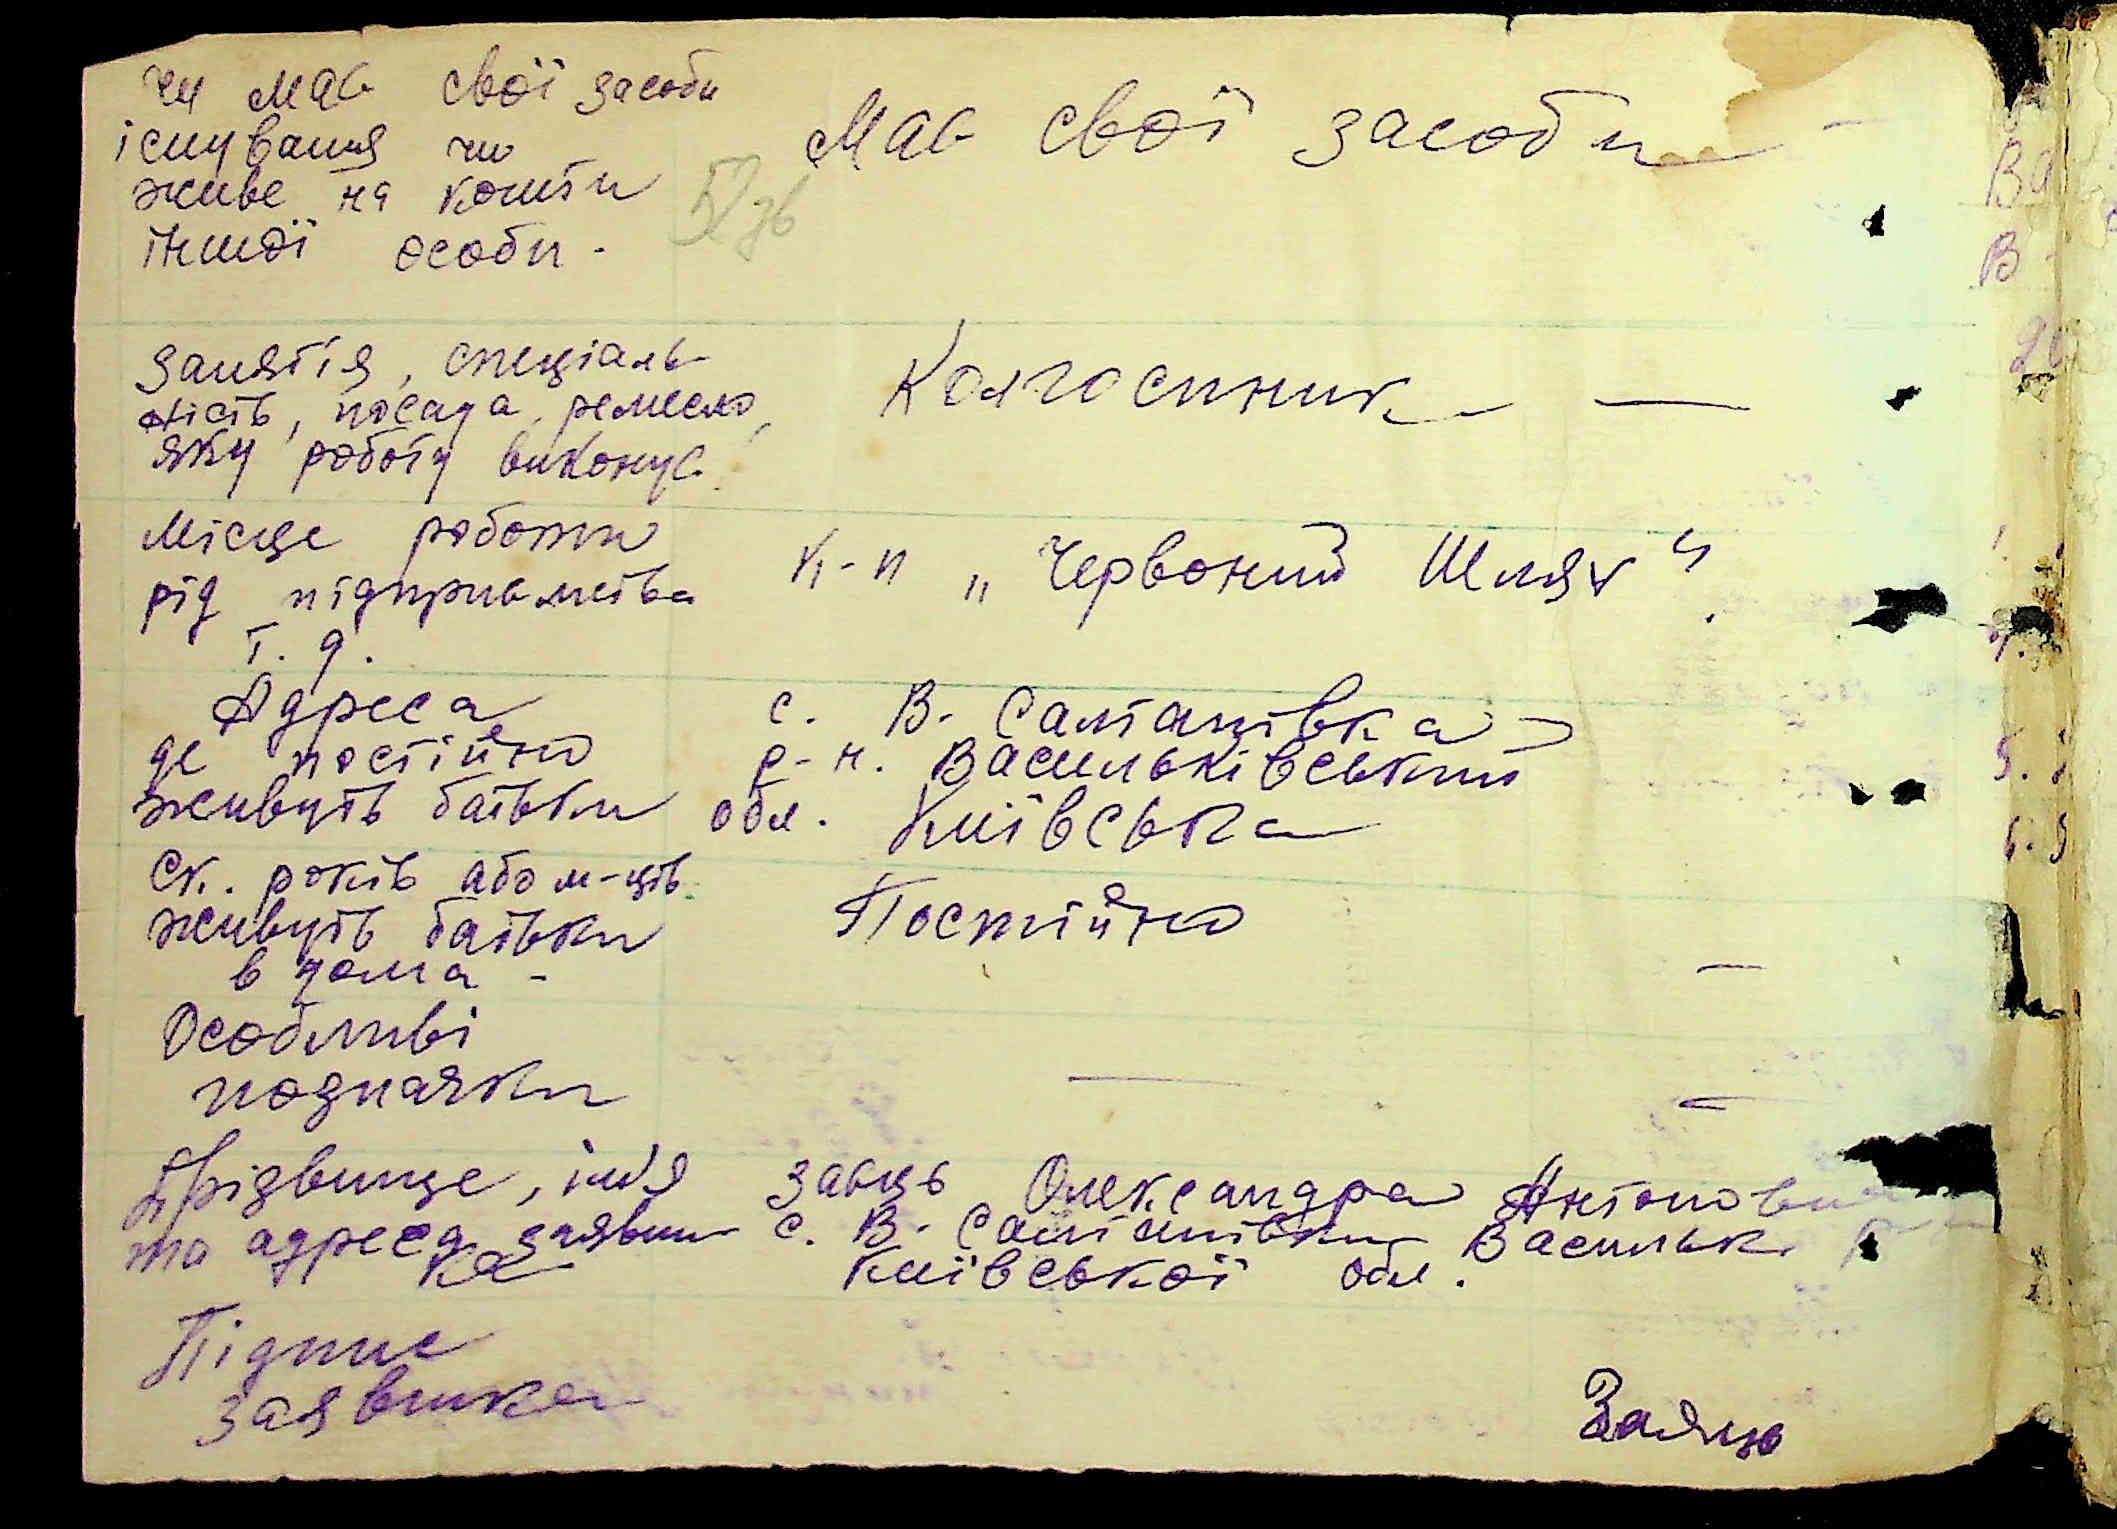 чи має свої засоби
існування чи
живе на кошти
іншої особи -
Має свої засоби —
57 зв
заняття, спеціаль-
ність, посада, ремесло,
яку роботу виконує.
Колгоспник —
Місце роботи
рід підприємства
т. д.
к-п „Червоний Шлях“.
Адреса
де постійно
живуть батьки
с. В. Салтанівка
р-н. Васильківський
обл. Київська
Ск. років або м-ців
живуть батьки
в дома -
Постійно —
Особливі
позначки
— —
Прізвище, ім'я
та адреса заявни
ка
Заєць Олександра Антоновна
с. В. Салтанівка Василькі
Київської обл.
Підпис
заявника
Заяць